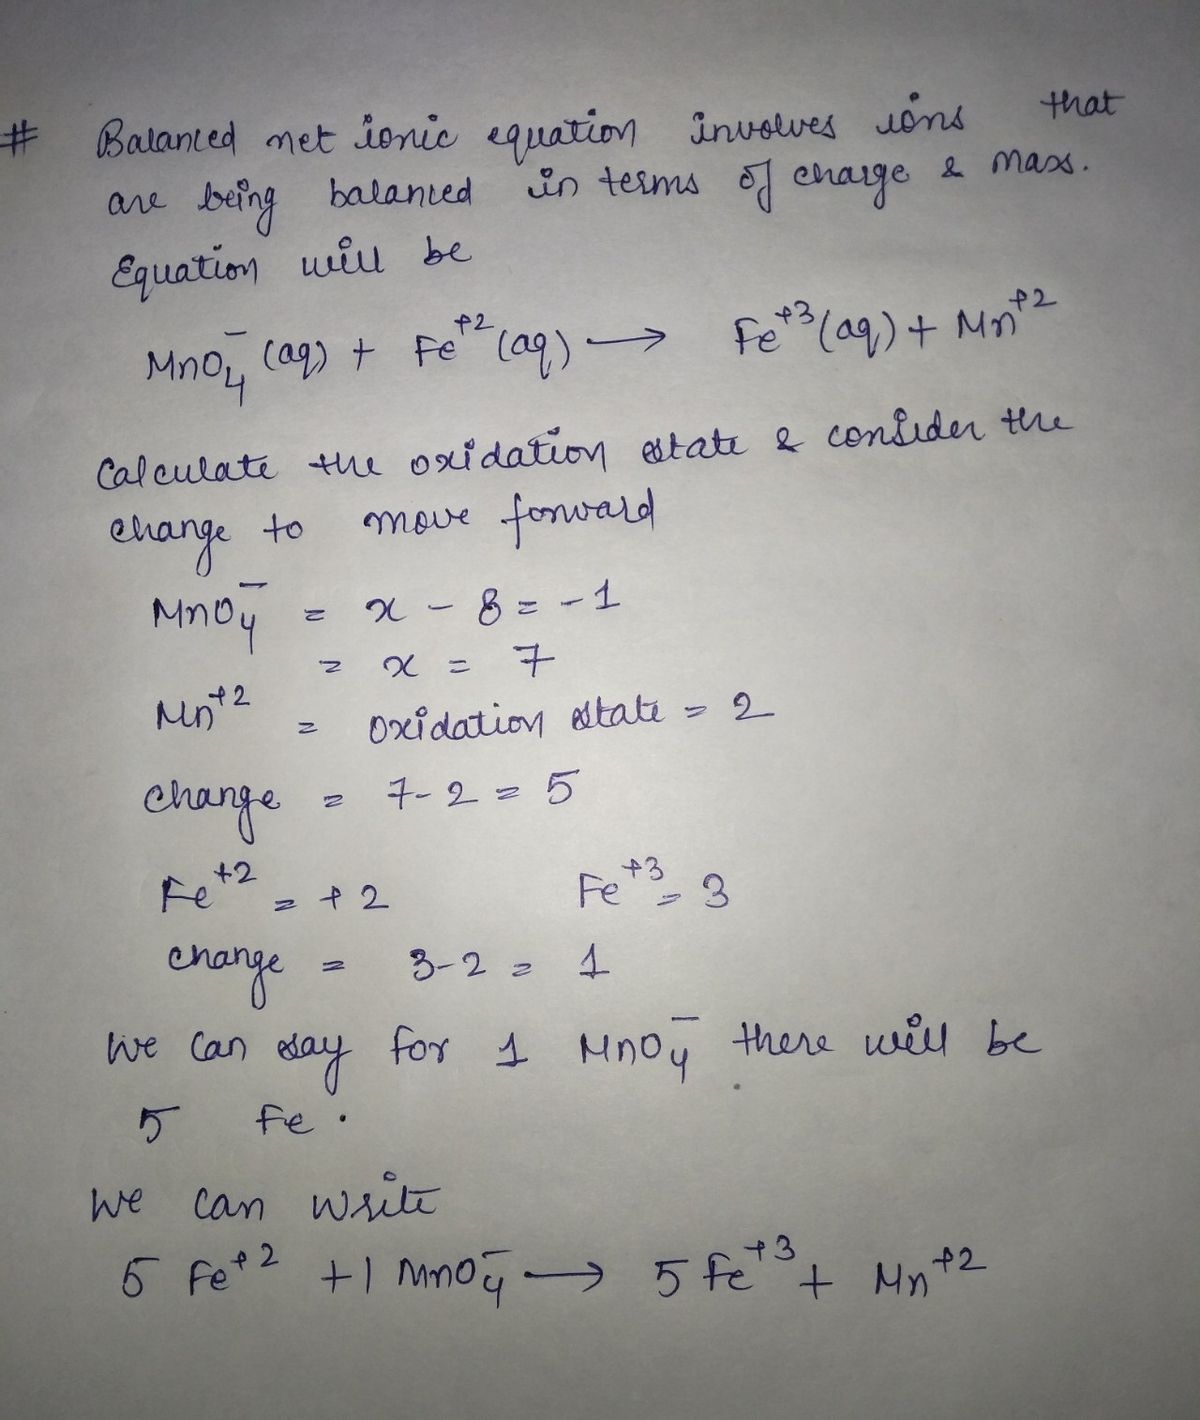 # Balanced net ionic equation involves ions that
are being balanced in terms of charge & mass.
Equation will be
MnO₄⁻ (aq) + Fe⁺² (aq) → Fe⁺³ (aq) + Mn⁺²
Calculate the oxidation state & consider the
change to move forward
MnO₄⁻ = x - 8 = -1
= x = 7
Mn⁺² = oxidation state = 2
change = 7-2 = 5
Fe⁺² = +2 Fe⁺³ = 3
change = 3-2 = 1
We can say for 1 MnO₄⁻ there will be
5 Fe.
We can write
5 Fe⁺² + 1 MnO₄⁻ → 5 Fe⁺³ + Mn⁺²